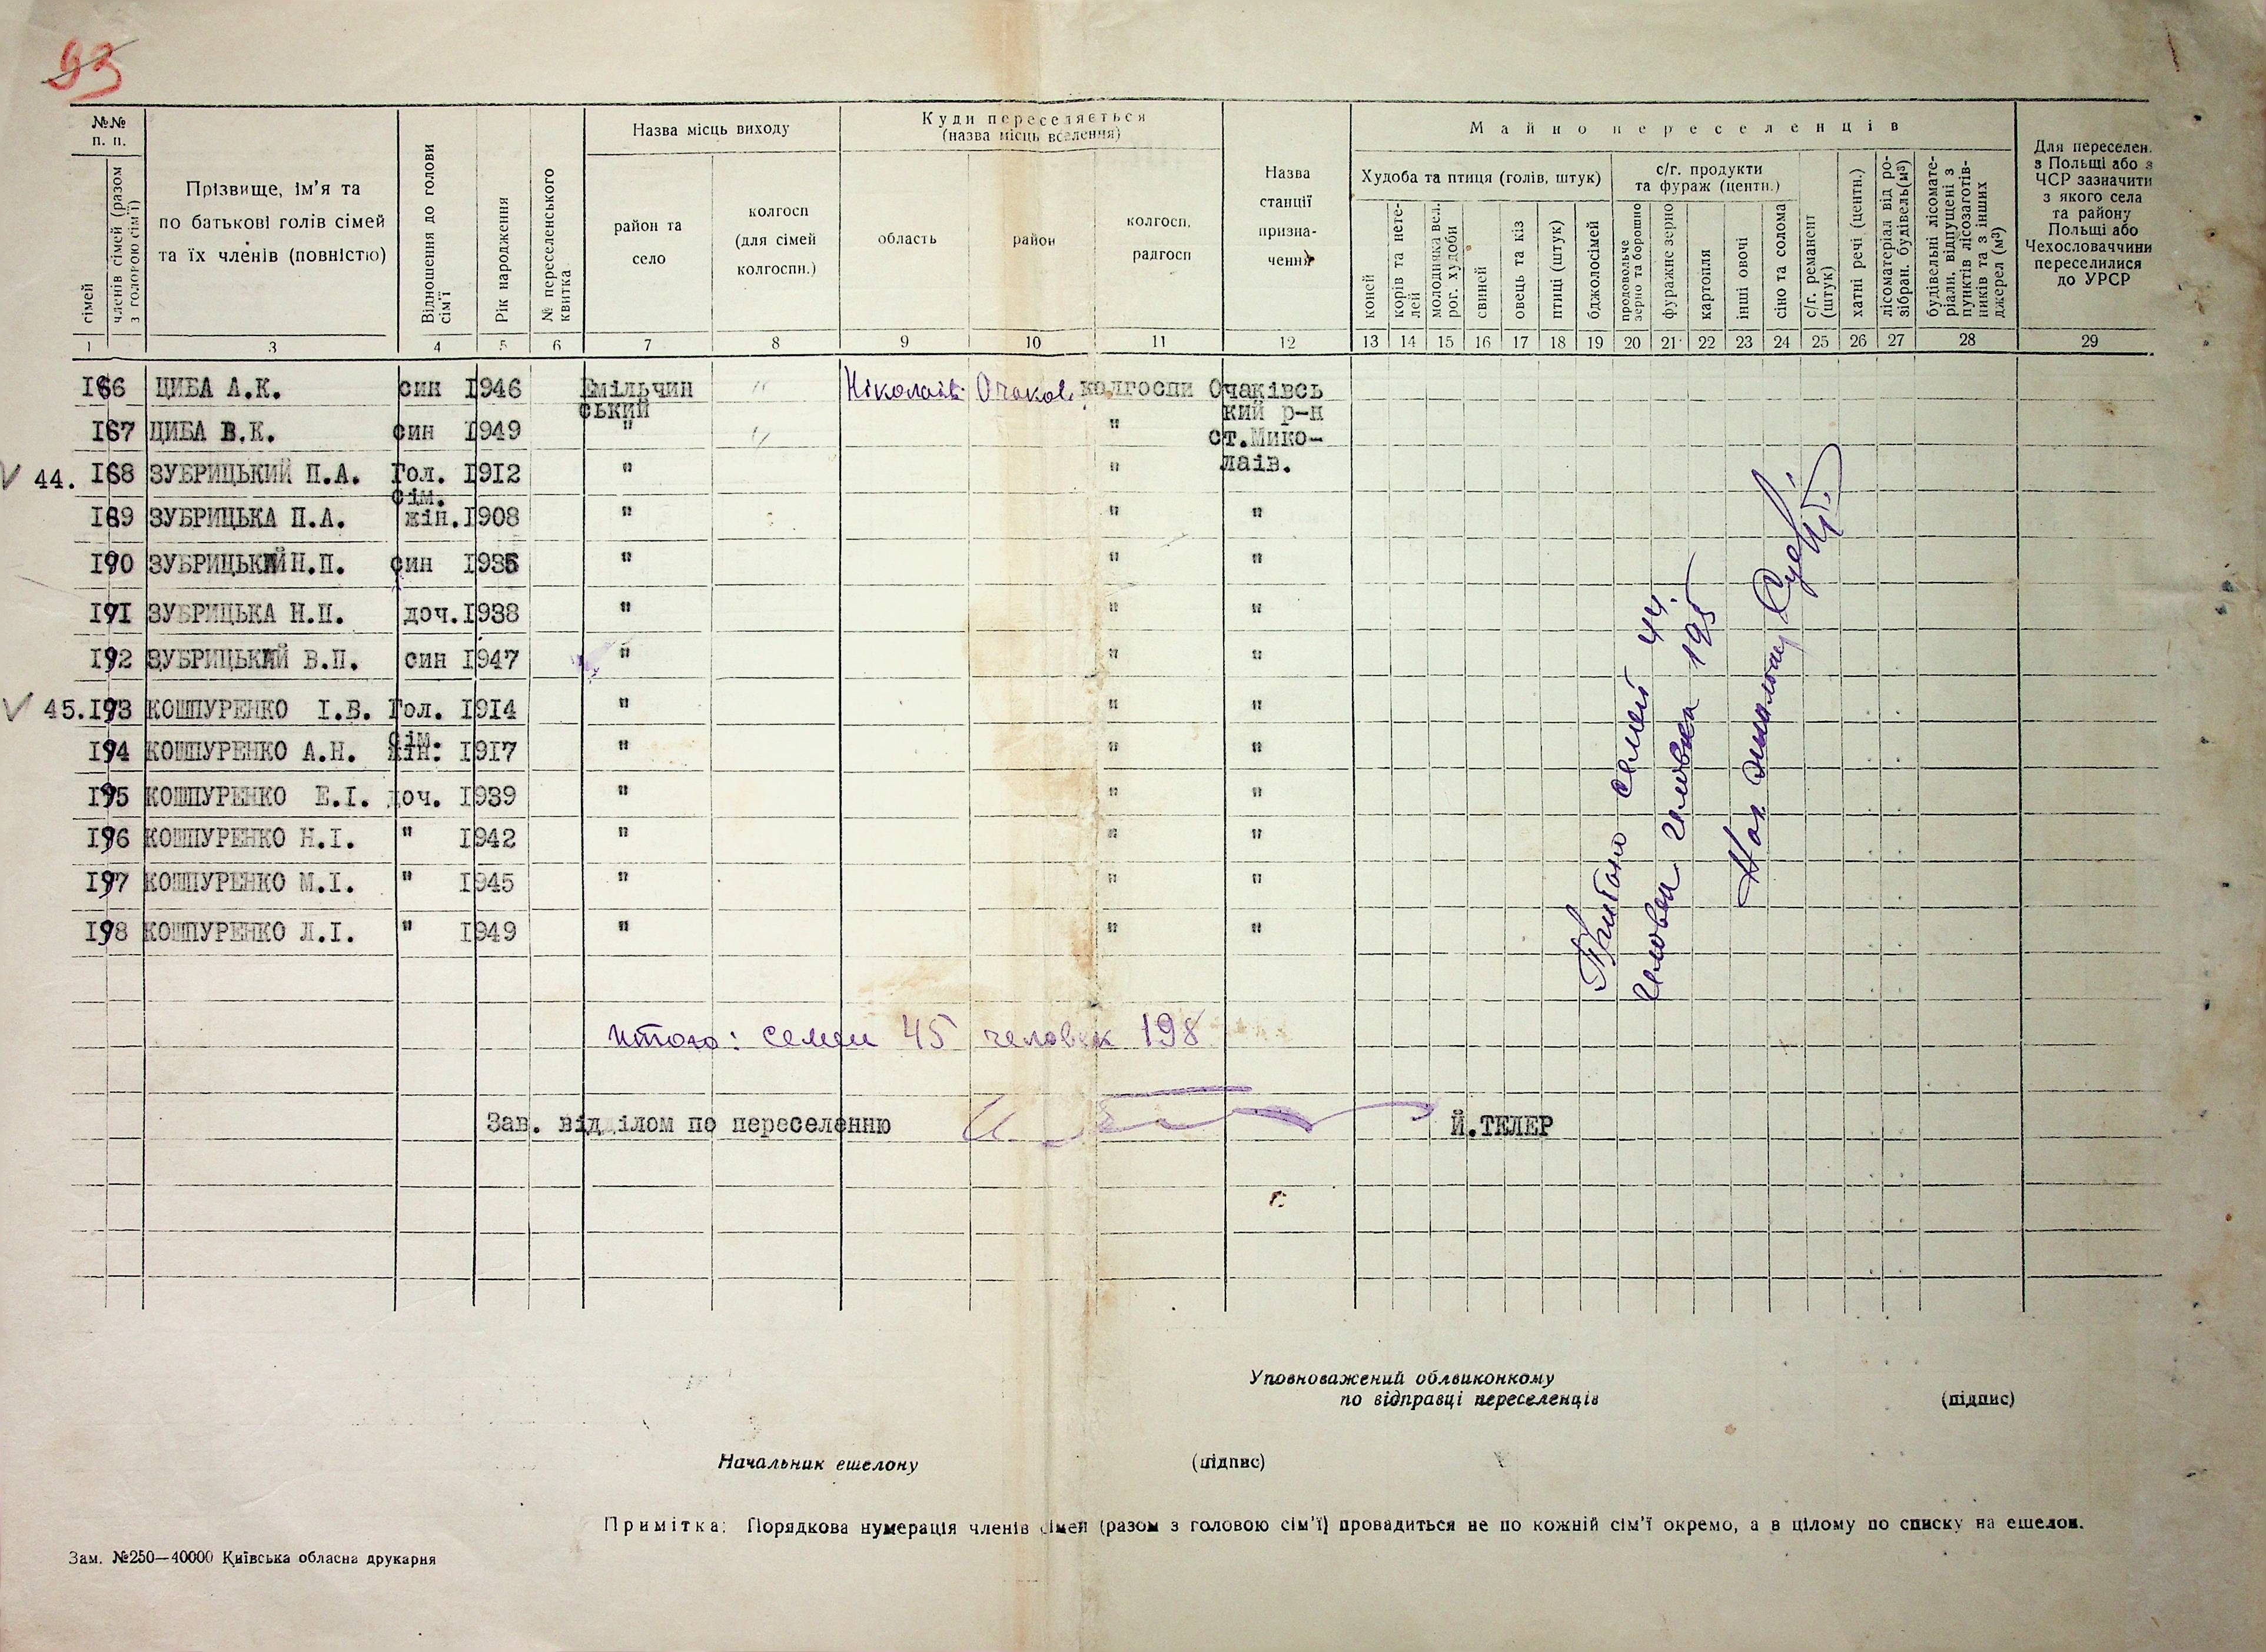 93
№№ п. п.
сімей
членів сімей (разом з головою сім'ї)
Прізвище, ім'я та
по батькові голів сімей
та їх членів (повністю)
Відношення до голови сім'ї
Рік народження
№ переселенського квитка
Назва місць виходу
район та село
колгосп (для сімей колгоспн.)
Куди переселяється
(назва місць вселення)
область
район
колгосп, радгосп
Назва станції призна-чення
Майно переселенців
Худоба та птиця (голів, штук)
коней
корів та нете-лей
молодняка вел. рог. худоби
свиней
овець та кіз
птиці (штук)
бджолосімей
с/г. продукти та фураж (центн.)
продовольче зерно та борошно
фуражне зерно
картопля
інші овочі
сіно та солома
с/г. реманент (штук)
хатні речі (центн.)
лісоматеріал від ро-зібран. будівель (м³)
будівельні лісомате-ріали, відпущені з пунктів лісозаготів-ників та з інших джерел (м³)
Для переселен. з Польщі або з ЧСР зазначити з якого села та району Польщі або Чехословаччини переселилися до УРСР
1 3 4 5 6 7 8 9 10 11 12 13 14 15 16 17 18 19 20 21 22 23 24 25 26 27 28 29
186 ЦИБА А.К. син 1946 Емільчин " Ніколаїв. Очаков. колгоспи Очаківсь
ський кий р-н
187 ЦИБА В.К. син 1949 " " " ст.Мико-
лаів.
44. 188 ЗУБРИЦЬКИЙ П.А. Гол. 1912 " "
сім.
189 ЗУБРИЦЬКА П.А. жін. 1908 " " "
190 ЗУБРИЦЬКИЙ Н.П. син 1936 " " "
191 ЗУБРИЦЬКА Н.П. доч. 1938 " " "
192 ЗУБРИЦЬКИЙ В.П. син 1947 " " "
45. 193 КОШПУРЕНКО І.В. Гол. 1914 " " "
сім.
194 КОШПУРЕНКО А.Н. жін. 1917 " " "
195 КОШПУРЕНКО Е.І. доч. 1939 " " "
196 КОШПУРЕНКО Н.І. " 1942 " " "
197 КОШПУРЕНКО М.І. " 1945 " " "
198 КОШПУРЕНКО Л.І. " 1949 " " "
итого: семеи 45 человек 198
Зав. відділом по переселенню Й.ТЕЛЕР
семей 44.
человек 195
Нач эшелону
Уповноважений облвиконкому
по відправці переселенців (підпис)
Начальник ешелону (підпис)
Примітка: Порядкова нумерація членів сімей (разом з головою сім'ї) провадиться не по кожній сім'ї окремо, а в цілому по списку на ешелон.
Зам. №250—40000 Київська обласна друкарня